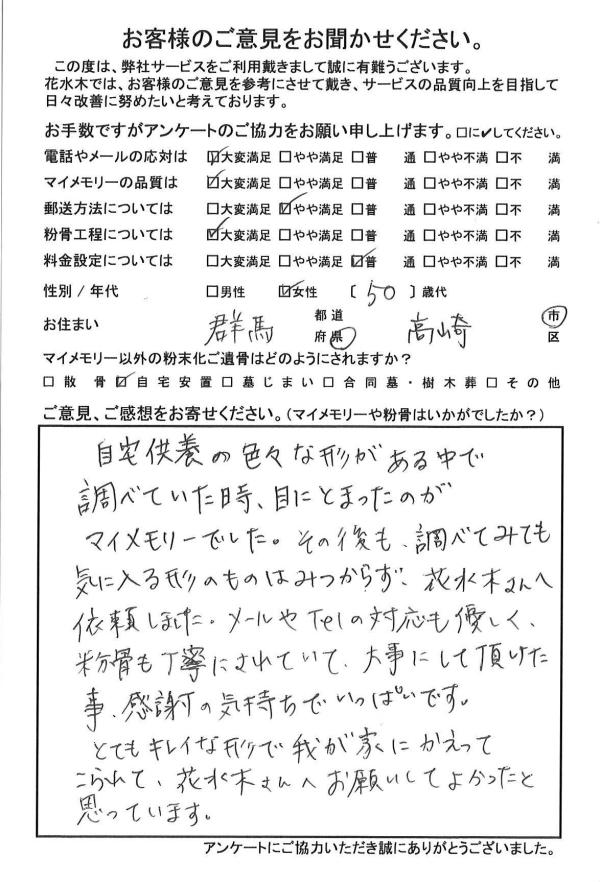 お客様のご意見をお聞かせください。
この度は、弊社サービスをご利用戴きまして誠に有難うございます。
花水木では、お客様のご意見を参考にさせて戴き、サービスの品質向上を目指して
日々改善に努めたいと考えております。
お手数ですがアンケートのご協力をお願い申し上げます。□に✔してください。
電話やメールの応対は ☑大変満足 □やや満足 □普 通 □やや不満 □不 満
マイメモリーの品質は ☑大変満足 □やや満足 □普 通 □やや不満 □不 満
郵送方法については □大変満足 ☑やや満足 □普 通 □やや不満 □不 満
粉骨工程については ☑大変満足 □やや満足 □普 通 □やや不満 □不 満
料金設定については □大変満足 □やや満足 ☑普 通 □やや不満 □不 満
性別 / 年代 □男性 ☑女性 [ 50 ] 歳代
お住まい 群馬 都道府県 高崎 市区
マイメモリー以外の粉末化ご遺骨はどのようにされますか？
□散 骨 ☑自宅安置 □墓じまい □合同墓・樹木葬 □その他
ご意見、ご感想をお寄せください。(マイメモリーや粉骨はいかがでしたか？)
自宅供養の色々な形がある中で
調べていた時、目にとまったのが
マイメモリーでした。その後も、調べてみても
気に入る形のものはみつからず、花水木さんへ
依頼しました。メールやTelの対応も優しく、
粉骨も丁寧にされていて、大事にして頂けた
事、感謝の気持ちでいっぱいです。
とてもキレイな形で我が家にかえって
こられて、花水木さんへお願いしてよかったと
思っています。
アンケートにご協力いただき誠にありがとうございました。